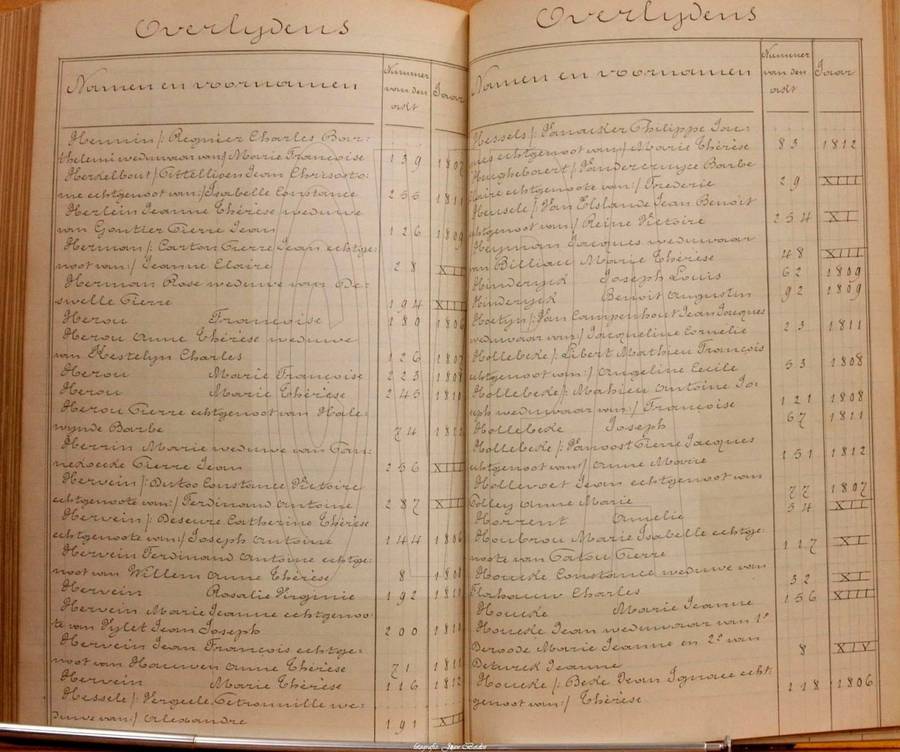 Overlydens
Namen en voornamen
Nummer van den ackt
Jaar
Hennin /: Regnier Charles Bar:
thelemi weduwaar van/ Marie Françoise 139 1807
Herkelbout/ Cittelligen Jean Chrisosto:
me echtgenoot van:/ Isabelle Constance 255 1811
Herlein Jeanne Thérèse weduwe
van Gontier Pierre Jean 126 1809
Herman /: Carton Pierre Jean echtge:
noot van:/ Jeanne Claire 28 XII
Herman Rose weduwe van De:
swelle Pierre 194 XIII
Herou Françoise 189 1806
Herou Anne Thérèse weduwe
van Kestelyn Charles 126 1807
Herou Marie Françoise 223 1808
Herou Marie Thérèse 245 1810
Herou Pierre echtgenoot van Hale:
wijnde Barbe 74
Herrin Marie weduwe van
Pierre Jean 256 XIII
Hervein/: Dutoo Constance Victoire
echtgenoote van:/ Ferdinand Antoine 287 XII
Hervein/: Deseure Catherine Thérèse
echtgenoote van:/ Joseph Antoine 144 1806
Hervein Ferdinand Antoine echtge:
noot van Willem Anne Thérèse 8 1808
Hervein Rosalie Virginie 192 1810
Hervein Marie Jeanne echtgenoo:
te van Vylet Jean Joseph 200 1810
Hervein Jean François echtge:
noot van Hauwen Anne Thérèse 71 1811
Hervein Marie Thérèse 116 1812
Hessele/: Verpeele Petronnille we:
duwe van:/ Alexandre 191 XII
Overlydens
Namen en voornamen
Nummer van den ackt
Jaar
Hessels/: Vanacker Philippe Jac:
ques echtgenoot van:/ Marie Thérèse 83 1812
Hughebaert/: Vandercruyce Barbe
Claire echtgenoote van:/ Frederic 29 XIII
Heusele/: Van Elslande Jean Benoit
echtgenoot van:/ Reine Victoire 254 XI
Heynman Jacques weduwaar
van Billiau Marie Thérèse 48 XIII
Hinderyck Joseph Louis 62 1809
Hinderyck Benoit Augustin 92 1809
Hoetyn/: Van Campenhout Jean Jacques
weduwaar van:/ Jacqueline Cornélie 23 1811
Hollebeke/: Libert Mathieu François
echtgenoot van:/ Angeline Cecile 53 1808
Hollebeke/: Mahieu Antoine Jo:
seph weduwaar van:/ Françoise 121 1808
Hollebeke Joseph 67 1811
Hollebeke/: Vanoost Pierre Jacques
echtgenoot van:/ Anne Marie 151 1812
Hollevoet Jean echtgenoot van
Colley Anne Marie 77 1807
Horrent Amelie 34 XII
Houbrou Marie Isabelle echtge:
noote van Catou Pierre 117 XI
Houcke Constance weduwe van
Flahauw Charles 32 XI
Houcke Marie Jeanne 156 XIII
Houcke Jean weduwaar van 1°
Deroode Marie Jeanne en 2° van
Deturck Jeanne 8 XIV
Houcke/: Beke Jean Ignace echt:
genoot van:/ Thérèse 118 1806